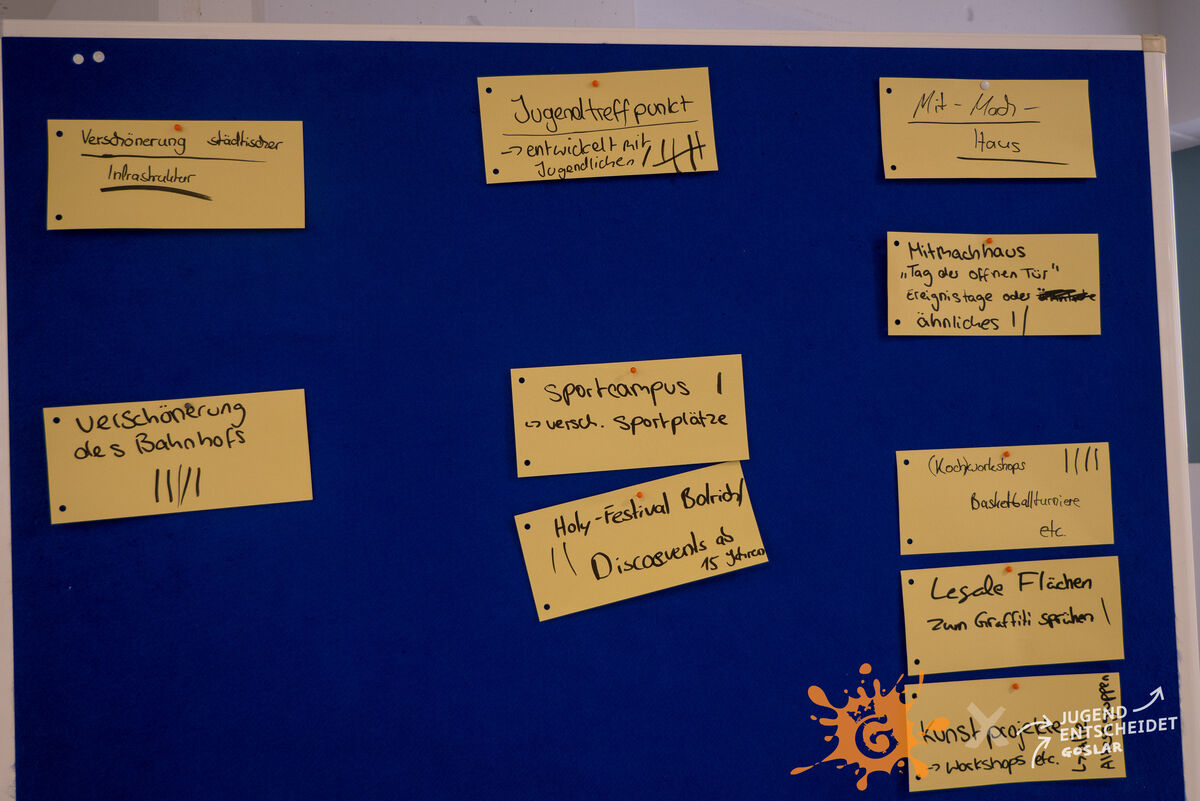 Verschönerung städtischer
Infrastruktur
Verschönerung
des Bahnhofs
Jugendtreffpunkt
-> entwickelt mit
Jugendlichen
Sportcampus |
-> versch. Sportplätze
Holy-Festival Bolrich/
|| Discoevents ab
15 Jahren
Mit-Mach-
Haus
Mitmachhaus
„Tag der offnen Tür"
Ereignistage oder
ähnliches ||
(Koch)workshops ||||
Basketballturniere
etc.
Legale Flächen
zum Graffiti sprühen |
Kunstprojekte
-> Workshops etc.
G
JUGEND
ENTSCHEIDET
GOSLAR